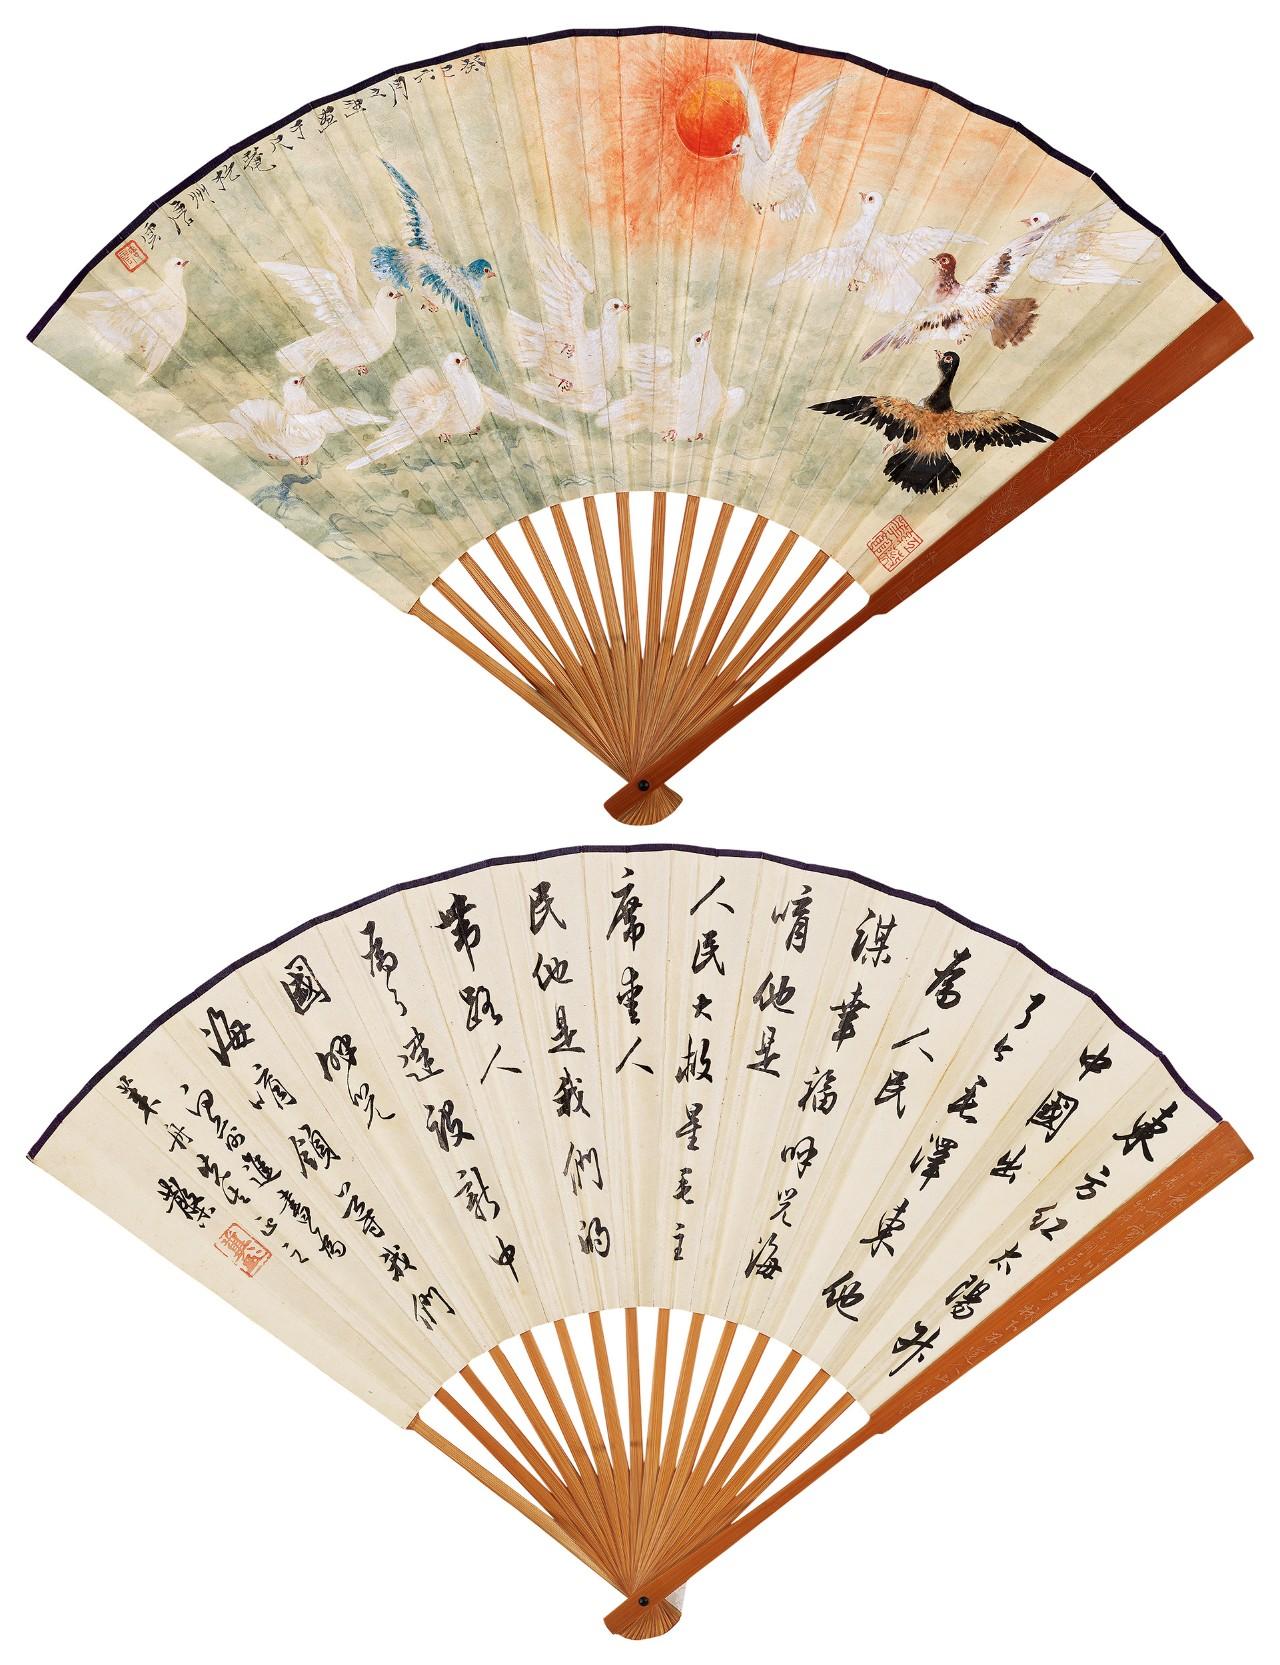 癸巳六月
杭州唐雲
東方紅太陽升
中國出
了个毛澤東他
為人民
謀幸福呼兒海
唷他是
人民大救星毛主
席愛人
民他是我們的
帶路人
為了建設新中
國呼兒
海唷領導我們
向前進書為
先生正之